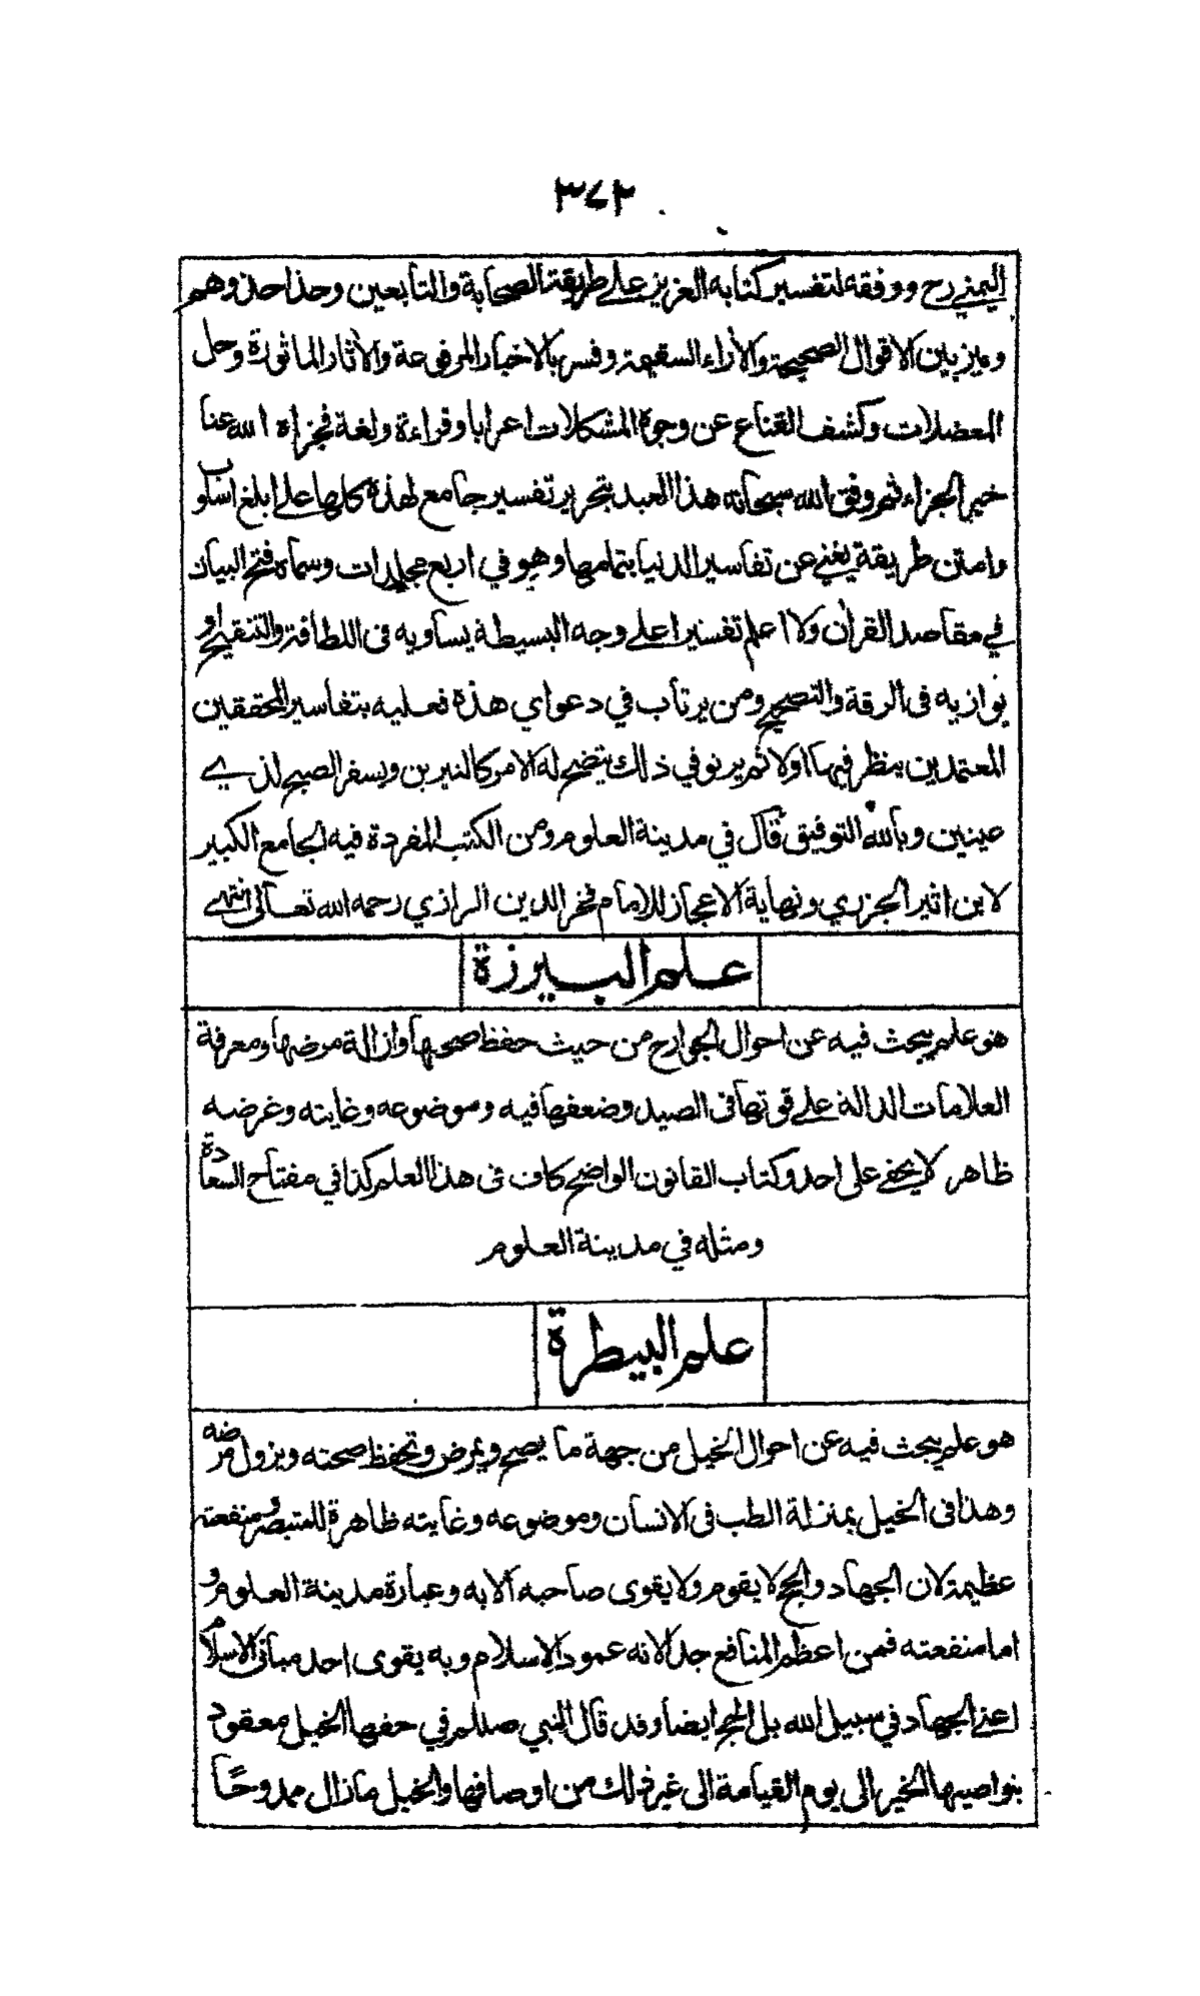 ٣٧٢
اليمني رح ووفقه لتفسير كتابه العزيز على طريقة الصحابة والتابعين وحذا حذوهم
وميز بين الاقوال الصحيحة والأراء السقيمة وفسر بالاخبار المرفوعة والأثار الماثورة وحل
المعضلات وكشف القناع عن وجوه المشكلات اعرابا وقراءة ولغة فجزاه الله عنا
خير الجزاء ثم وفق الله سبحانه هذا العبد بتحرير تفسير جامع لهذه كلها على ابلغ اسلوب
وامتن طريقة يغني عن تفاسير الدنيا بتمامها وهو في اربع مجلدات وسماه فتح البيان
في مقاصد القرأن ولا اعلم تفسيرا على وجه البسيطة يساويه فى اللطافة والتنقيح او
يوازيه فى الرقة والتصحيح ومن يرتاب في دعواي هذه فعليه بتفاسير المحققين
المعتمدين ينظر فيها اولا ثم يرنو في ذلك يتضح له الامر كالنيرين ويسفر الصبح لذي
عينين وبالله التوفيق قال في مدينة العلوم ومن الكتب المفردة فيه الجامع الكبير
لابن اثير الجزري ونهاية الاعجاز للامام فخر الدين الرازي رحمه الله تعالى انتهى
علم البيرزة
هو علم يبحث فيه عن احوال الجوارح من حيث حفظ صحتها وازالة مرضها ومعرفة
العلامات الدالة على قوتها فى الصيد وضعفها فيه وموضوعه وغايته وغرضه
ظاهر لا يخفى على احد وكتاب القانون الواضح كاف فى هذا العلم كذا في مفتاح السعادة
ومثله في مدينة العلوم
علم البيطرة
هو علم يبحث فيه عن احوال الخيل من جهة ما يصح ويمرض وتحفظ صحته ويزول مرضه
وهذا فى الخيل بمنزلة الطب فى الانسان وموضوعه وغايته ظاهرة للمتبصر ومنفعته
عظيمة لان الجهاد والحج لا يقوم ولا يقوى صاحبه الا به وعبارة مدينة العلوم و
اما منفعته فمن اعظم المنافع جدا لانه عمود الاسلام وبه يقوى احد مبانى الاسلام
اعني الجهاد في سبيل الله بل الحج ايضا وقد قال النبي صللم في حقها الخيل معقود
بنواصيها الخير الى يوم القيامة الى غير ذلك من اوصافها والخيل مازال ممدوحًا